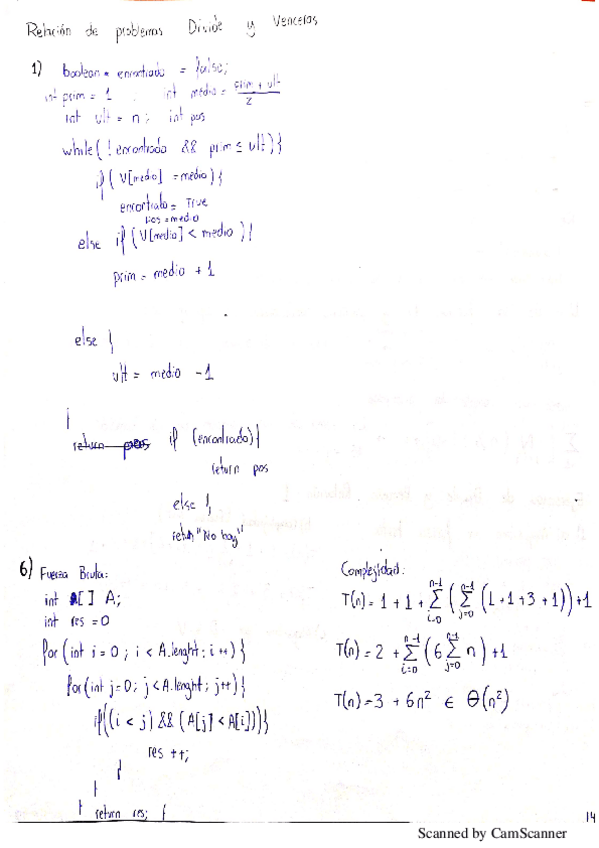 Relación de problemas Divide y Vencerás
1) boolean encontrado = false;
int prim = 1 int medio = prim + ult / 2
int ult = n; int pos
while( ! encontrado && prim ≤ ult){
if( V[medio] = medio){
encontrado = True
pos = medio
else if( V[medio] < medio ){
prim = medio + 1
else {
ult = medio - 1
}
return pos if (encontrado){
return pos
else {
return "No hay"
6) Fuerza Bruta:
int [] A;
int res = 0
for(int i = 0 ; i < A.lenght ; i++){
for(int j=0; j<A.lenght; j++){
if((i < j) && (A[j] < A[i])){
res ++;
}
}
} return res; {
Complejidad:
T(n) = 1 + 1 + n-1 Σ i=0 ( n-1 Σ j=0 (1+1+3+1)) + 1
T(n) = 2 + n-1 Σ i=0 (6 n-1 Σ j=0 n) + 1
T(n) = 3 + 6n² ∈ Θ(n²)
14
Scanned by CamScanner